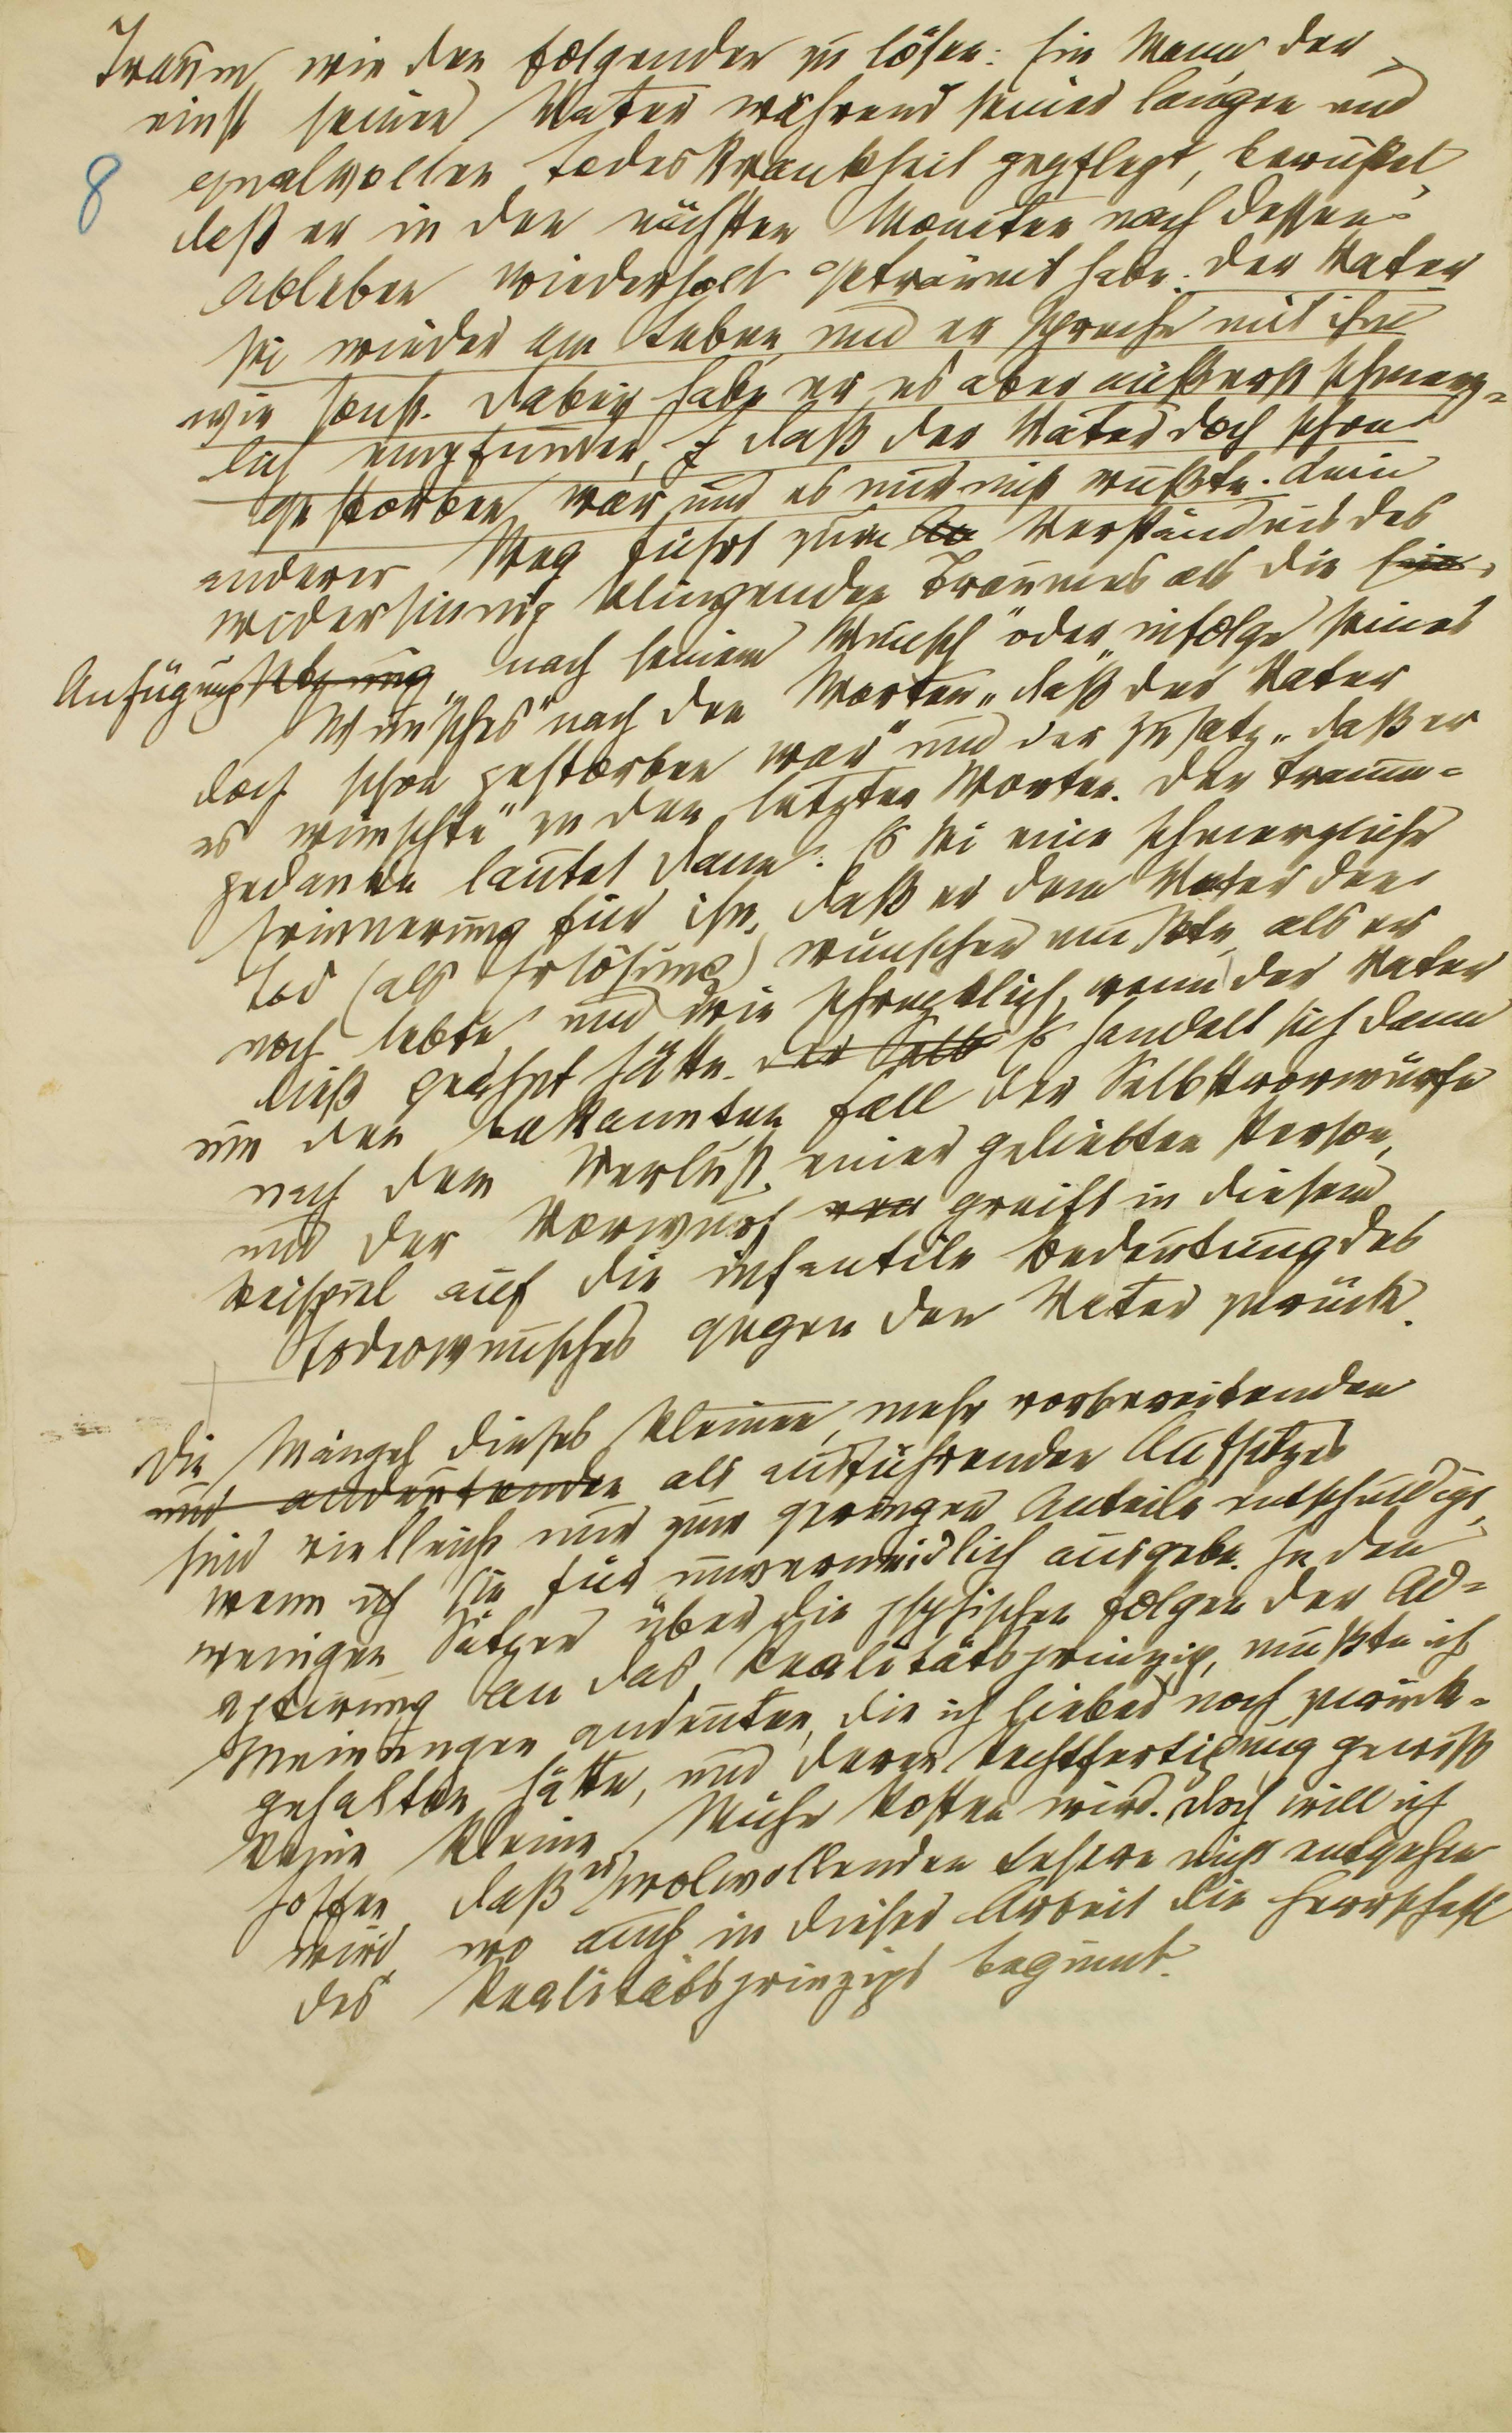 Traum wie den folgenden zu lösen: Ein Mann der
einst seinen Vater während seiner langen und
8
qualvollen Todeskrankheit gepflegt, berichtet
daß er in den nächsten Monaten nach dessen
Ableben wiederholt geträumt habe: der Vater
sei wieder am Leben und er spreche mit ihm
wie sonst. Dabei habe er es aber äußerst schmerz=
lich empfunden, daß der Vater doch schon
gestorben war und es nur nicht wußte. Kein
anderer Weg führt zum Verständnis des
widersinnig klingenden Traumes als die
Anfügung „nach seinem Wunsch" oder „infolge seines
Wunsches" nach den Worten „daß der Vater
doch schon gestorben war" und der Zusatz „daß er
es wünschte" zu den letzten Worten. Der Traum=
gedanke lautet dann: Es sei eine schmerzliche
Erinnerung für ihn, daß er dem Vater den
Tod (als Erlösung) wünschen mußte, als er
noch lebte, und wie schrecklich, wenn der Vater
dieß geahnt hätte. Der Es handelt sich dann
um den bekannten Fall der Selbstvorwürfe
nach dem Verlust einer geliebten Person,
und der Vorwurf greift in diesem
Beispiel auf die infantile Bedeutung des
Todeswunsches gegen den Vater zurück.
Die Mängel dieses kleinen, mehr vorbereitenden
und andeutenden als ausführenden Aufsatzes
sind vielleicht nur zum geringen Anteile entschuldigt,
wenn ich sie für unvermeidlich ausgebe. In den
wenigen Sätzen über die psychischen Folgen der Ad=
aptirung an das Realitätsprinzip, mußte ich
Meinungen andeuten, die ich lieber noch zurück=
gehalten hätte, und deren Rechtfertigung gewiß
keine kleine Mühe kosten wird. Doch will ich
hoffen, daß es wolwollenden Lesern nicht entgehen
wird, wo auch in dieser Arbeit die Herrschaft
des Realitätsprinzips beginnt.